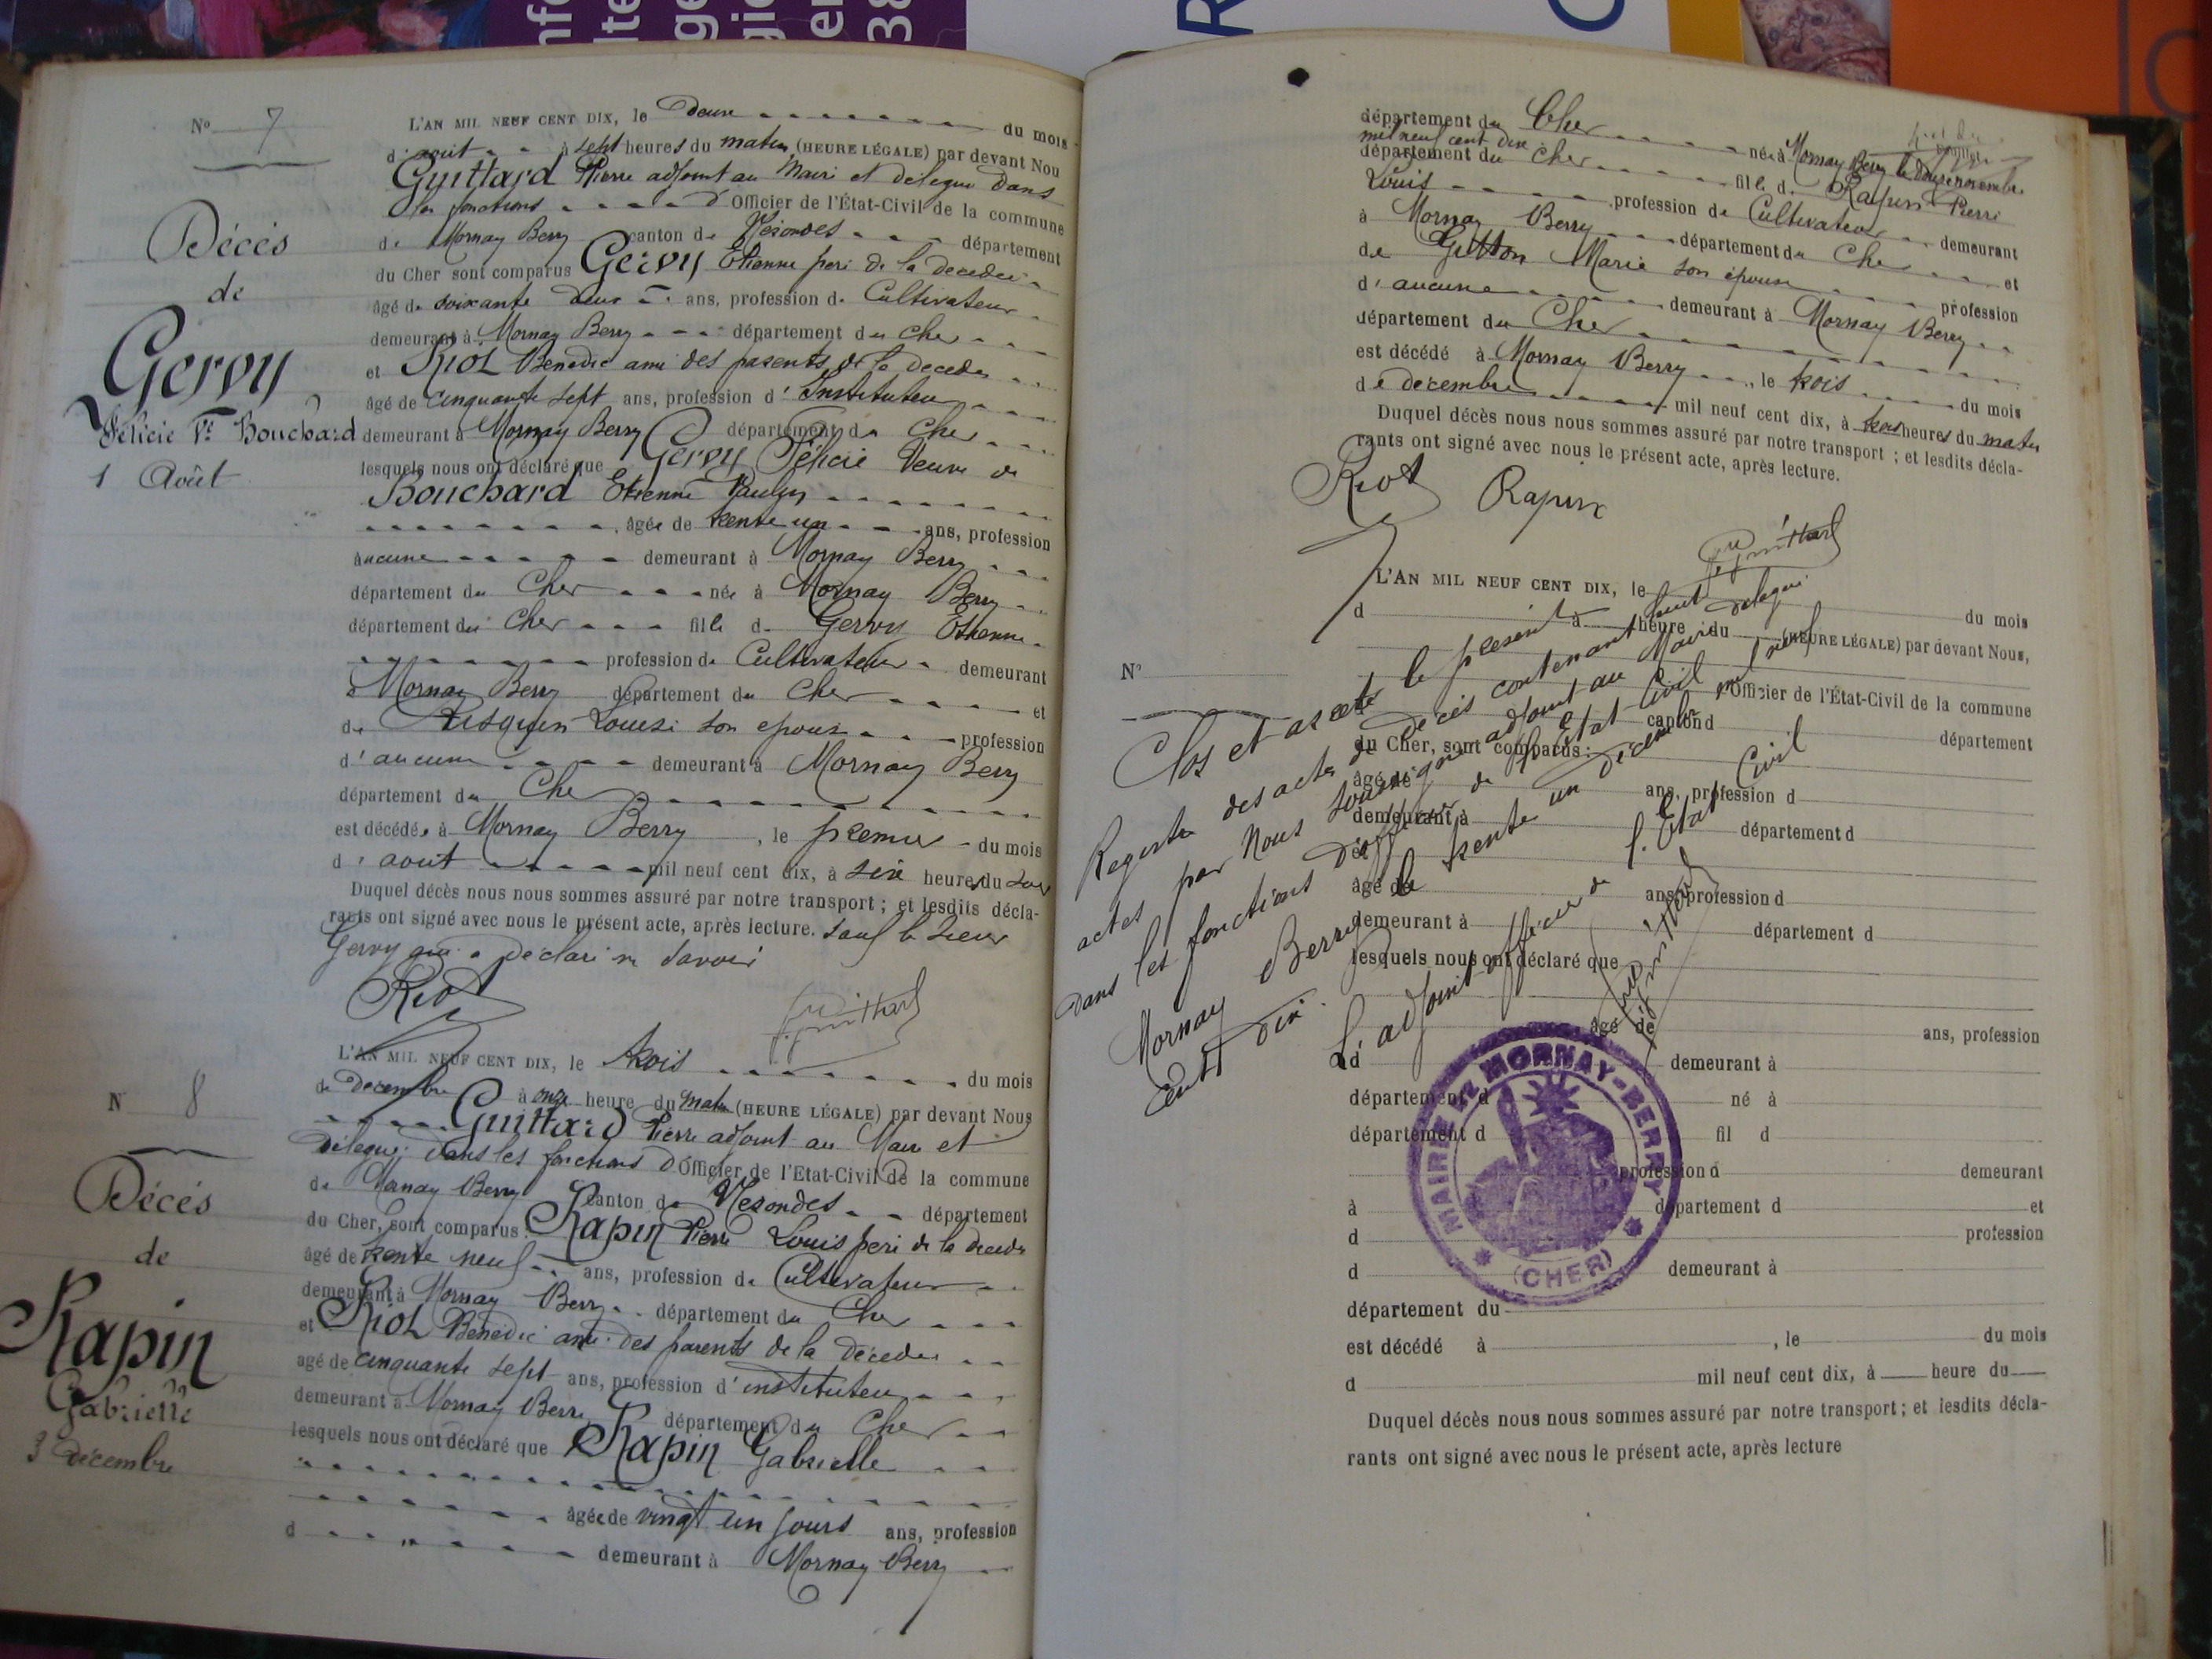 N° 7
Décès
de
Gervy
Félicie Ve Bouchard
1 Août
L'AN MIL NEUF CENT DIX, le deux du mois
d'août à sept heures du matin (HEURE LÉGALE) par devant Nou
Guittard Pierre adjoint au Maire et délégué dans
les fonctions d'Officier de l'État-Civil de la commune
de Mornay Berry canton de Nérondes département
du Cher sont comparus Gervy Etienne père de la décédée
âgé de soixante deux ans, profession de Cultivateur
demeurant à Mornay Berry département du Cher
et Riot Benedic ami des parents de la décédée
âgé de cinquante sept ans, profession d'Instituteur
demeurant à Mornay Berry département du Cher
lesquels nous ont déclaré que Gervy Félicie Veuve de
Bouchard Etienne
âgée de trente un ans, profession
aucune demeurant à Mornay Berry
département du Cher née à Mornay Berry
département du Cher fille d. Gervy Etienne
profession de Cultivateur demeurant
à Mornay Berry département du Cher et
de Louise son épouse profession
d'aucune demeurant à Mornay Berry
département du Cher
est décédée à Mornay Berry, le premier du mois
d'août mil neuf cent dix, à six heures du soir
Duquel décès nous nous sommes assuré par notre transport ; et lesdits décla-
rants ont signé avec nous le présent acte, après lecture. sauf le sieur
Gervy qui a déclaré ne savoir
Riot Guittard
N 8
Décès
de
Rapin
Gabrielle
3 décembre
L'AN MIL NEUF CENT DIX, le trois du mois
de décembre à onze heure du matin (HEURE LÉGALE) par devant Nous
Guittard Pierre adjoint au Maire et
délégué dans les fonctions d'Officier de l'Etat-Civil de la commune
de Mornay Berry canton de Nérondes département
du Cher, sont comparus : Rapin Pierre Louis père de la décédée
âgé de trente neuf ans, profession de Cultivateur
demeurant à Mornay Berry département du Cher
et Riot Benedic ami des parents de la décédée
agé de cinquante sept ans, profession d'instituteur
demeurant à Mornay Berry département du Cher
lesquels nous ont déclaré que Rapin Gabrielle
âgée de vingt un jours ans, profession
d demeurant à Mornay Berry
département du Cher née à Mornay Berry le douze novembre
mil neuf cent dix
département du Cher fille d. Rapin Pierre
Louis profession de Cultivateur demeurant
à Mornay Berry département du Cher et
de Gitton Marie son épouse profession
d'aucune demeurant à Mornay Berry
département du Cher
est décédé à Mornay Berry, le trois du mois
de décembre mil neuf cent dix, à trois heures du matin
Duquel décès nous nous sommes assuré par notre transport ; et lesdits décla-
rants ont signé avec nous le présent acte, après lecture.
Riot Rapin Guittard
L'AN MIL NEUF CENT DIX, le du mois
d à heure du (HEURE LÉGALE) par devant Nous,
N°
Officier de l'État-Civil de la commune
canton d département
du Cher, sont comparus :
âgé de ans, profession d
demeurant à département d
âgé de ans, profession d
demeurant à département d
lesquels nous ont déclaré que
âgé de ans, profession
d demeurant à
département d né à
département d fil d
profession d demeurant
à département d et
d profession
d demeurant à
département du
est décédé à , le du mois
d mil neuf cent dix, à heure du
Duquel décès nous nous sommes assuré par notre transport ; et lesdits décla-
rants ont signé avec nous le présent acte, après lecture
Clos et arrêté le présent
Registre des actes de décès contenant huit
actes par Nous soussigné adjoint au Maire délégué
dans les fonctions d'officier de l'Etat Civil
Mornay Berry le trente un décembre mil neuf
cent dix.
L'adjoint officier de l'Etat Civil
Guittard
MAIRIE DE MORNAY-BERRY
(CHER)